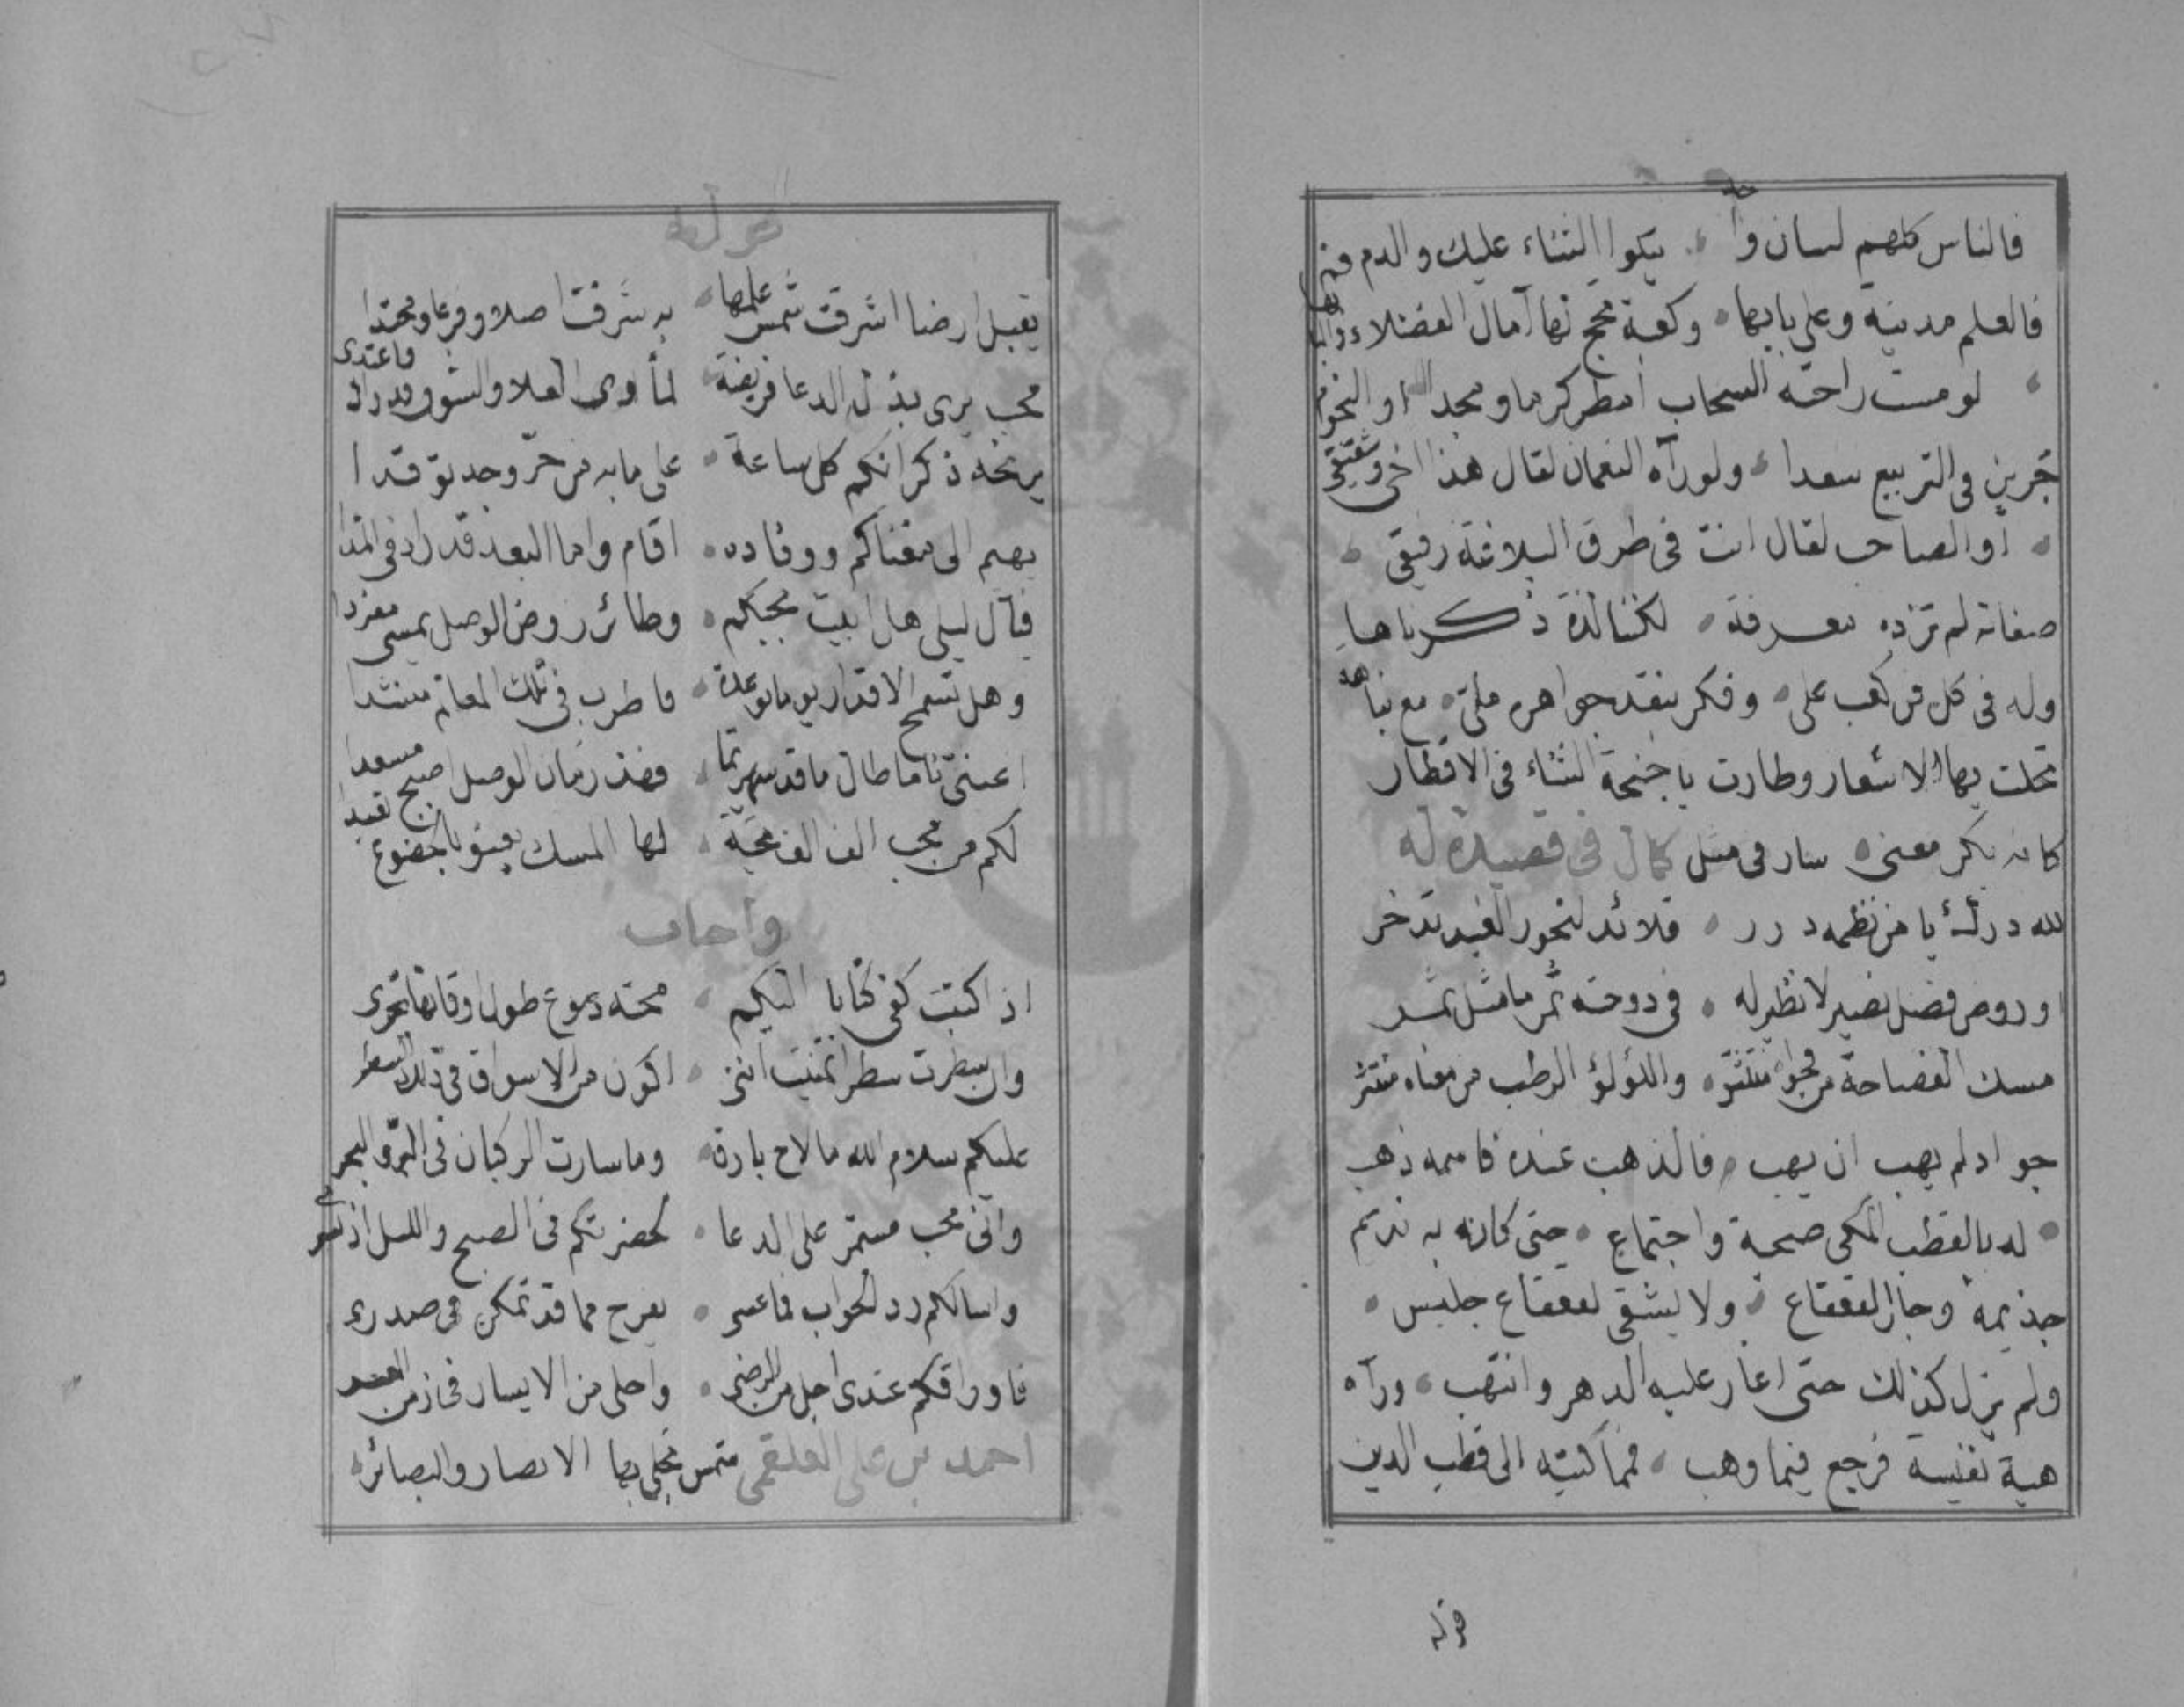 فالناس كلهم لسان واحد يتلوا الثناء عليك والدم فم
فالعلم مدينة وعلي بابها وكعبة تحج لها آمال الفضلاء والبابها
لو مست راحته السحاب امطر كرما ومجدا او النجوم
جرين في التربيع سعدا ولو رآه النعمان لقال هذا اخي وشقيقي
او الصاحب لقال انت في طرق البلاغة رفيقي
صفاته لم تزده معرفة لكننا لذة ذكرناها
وله في كل فن كعب علي وفكر بنقد جواهره ملي مع نباهة
تحلت بها الاشعار وطارت باجنحة الثناء في الاقطار
كانه بكر معنى سار في مثل كمال في قصيدة له
لله درك يا من نظمه درر قلائد لنحور الغيد تدخر
وروض فضل نضير لا نظير له في دوحته ثمر ما مثل ثمر
مسك الفصاحة من فحواه منتشر واللؤلؤ الرطب من معناه منتثر
جواد لم يهب ان يهب فالذهب عنده فاسمه ذهب
له بالقطب المكي صحبة واجتماع حتى كانه به نديم
جذيمة وجار القعقاع ولا يشقى لقعقاع جليس
ولم يزل كذلك حتى اغار عليه الدهر وانتهب ورآه
هبة نفيسة فرجع فيما وهب فمما كتبته الى قطب الدين
قوله
قوله
يقبل ارضا اشرقت شمس علمها به شرفت اصلا وفرعا ومحتدا
محب يرى بذل الدعا فريضة لمأوى العلا والشوق قد زاد واعتدى
يرنحه ذكراكم كل ساعة على ما به من حر وجد توقدا
يهيم الى مغناكم وفؤاده اقام واما البعد قد زاد في المدا
فيآل ليلى هل ابيت محبكم وطائر روض الوصل يمسي مغردا
وهل تسمح الاقدار يوما بوعده فاطرب في تلك المعالم منشدا
اعينيّ ناما طال ما قد سهرتما فهذا زمان الوصل اصبح مسعدا
لكم من محب الف الف تحية لها المسك يعنو بالخضوع تعبدا
واجاب
اذا كتبت كفي كتابا اليكم محته دموع طول اوقاتها تجري
وان سطرت سطرا تمنيت انني اكون من الاشواق في ذلك السطر
عليكم سلام الله ما لاح بارق وما سارت الركبان في البر والبحر
واني محب مستمر على الدعا لحضرتكم في الصبح والليل اذ يسري
واسالكم رد الجواب فاعسى يفرح مما قد تمكن في صدري
فاوراقكم عندي اجل من الرضى واحلى من الايسار في زمن العسر
احمد بن علي العلقمي شمس تجلى بها الابصار والبصائر